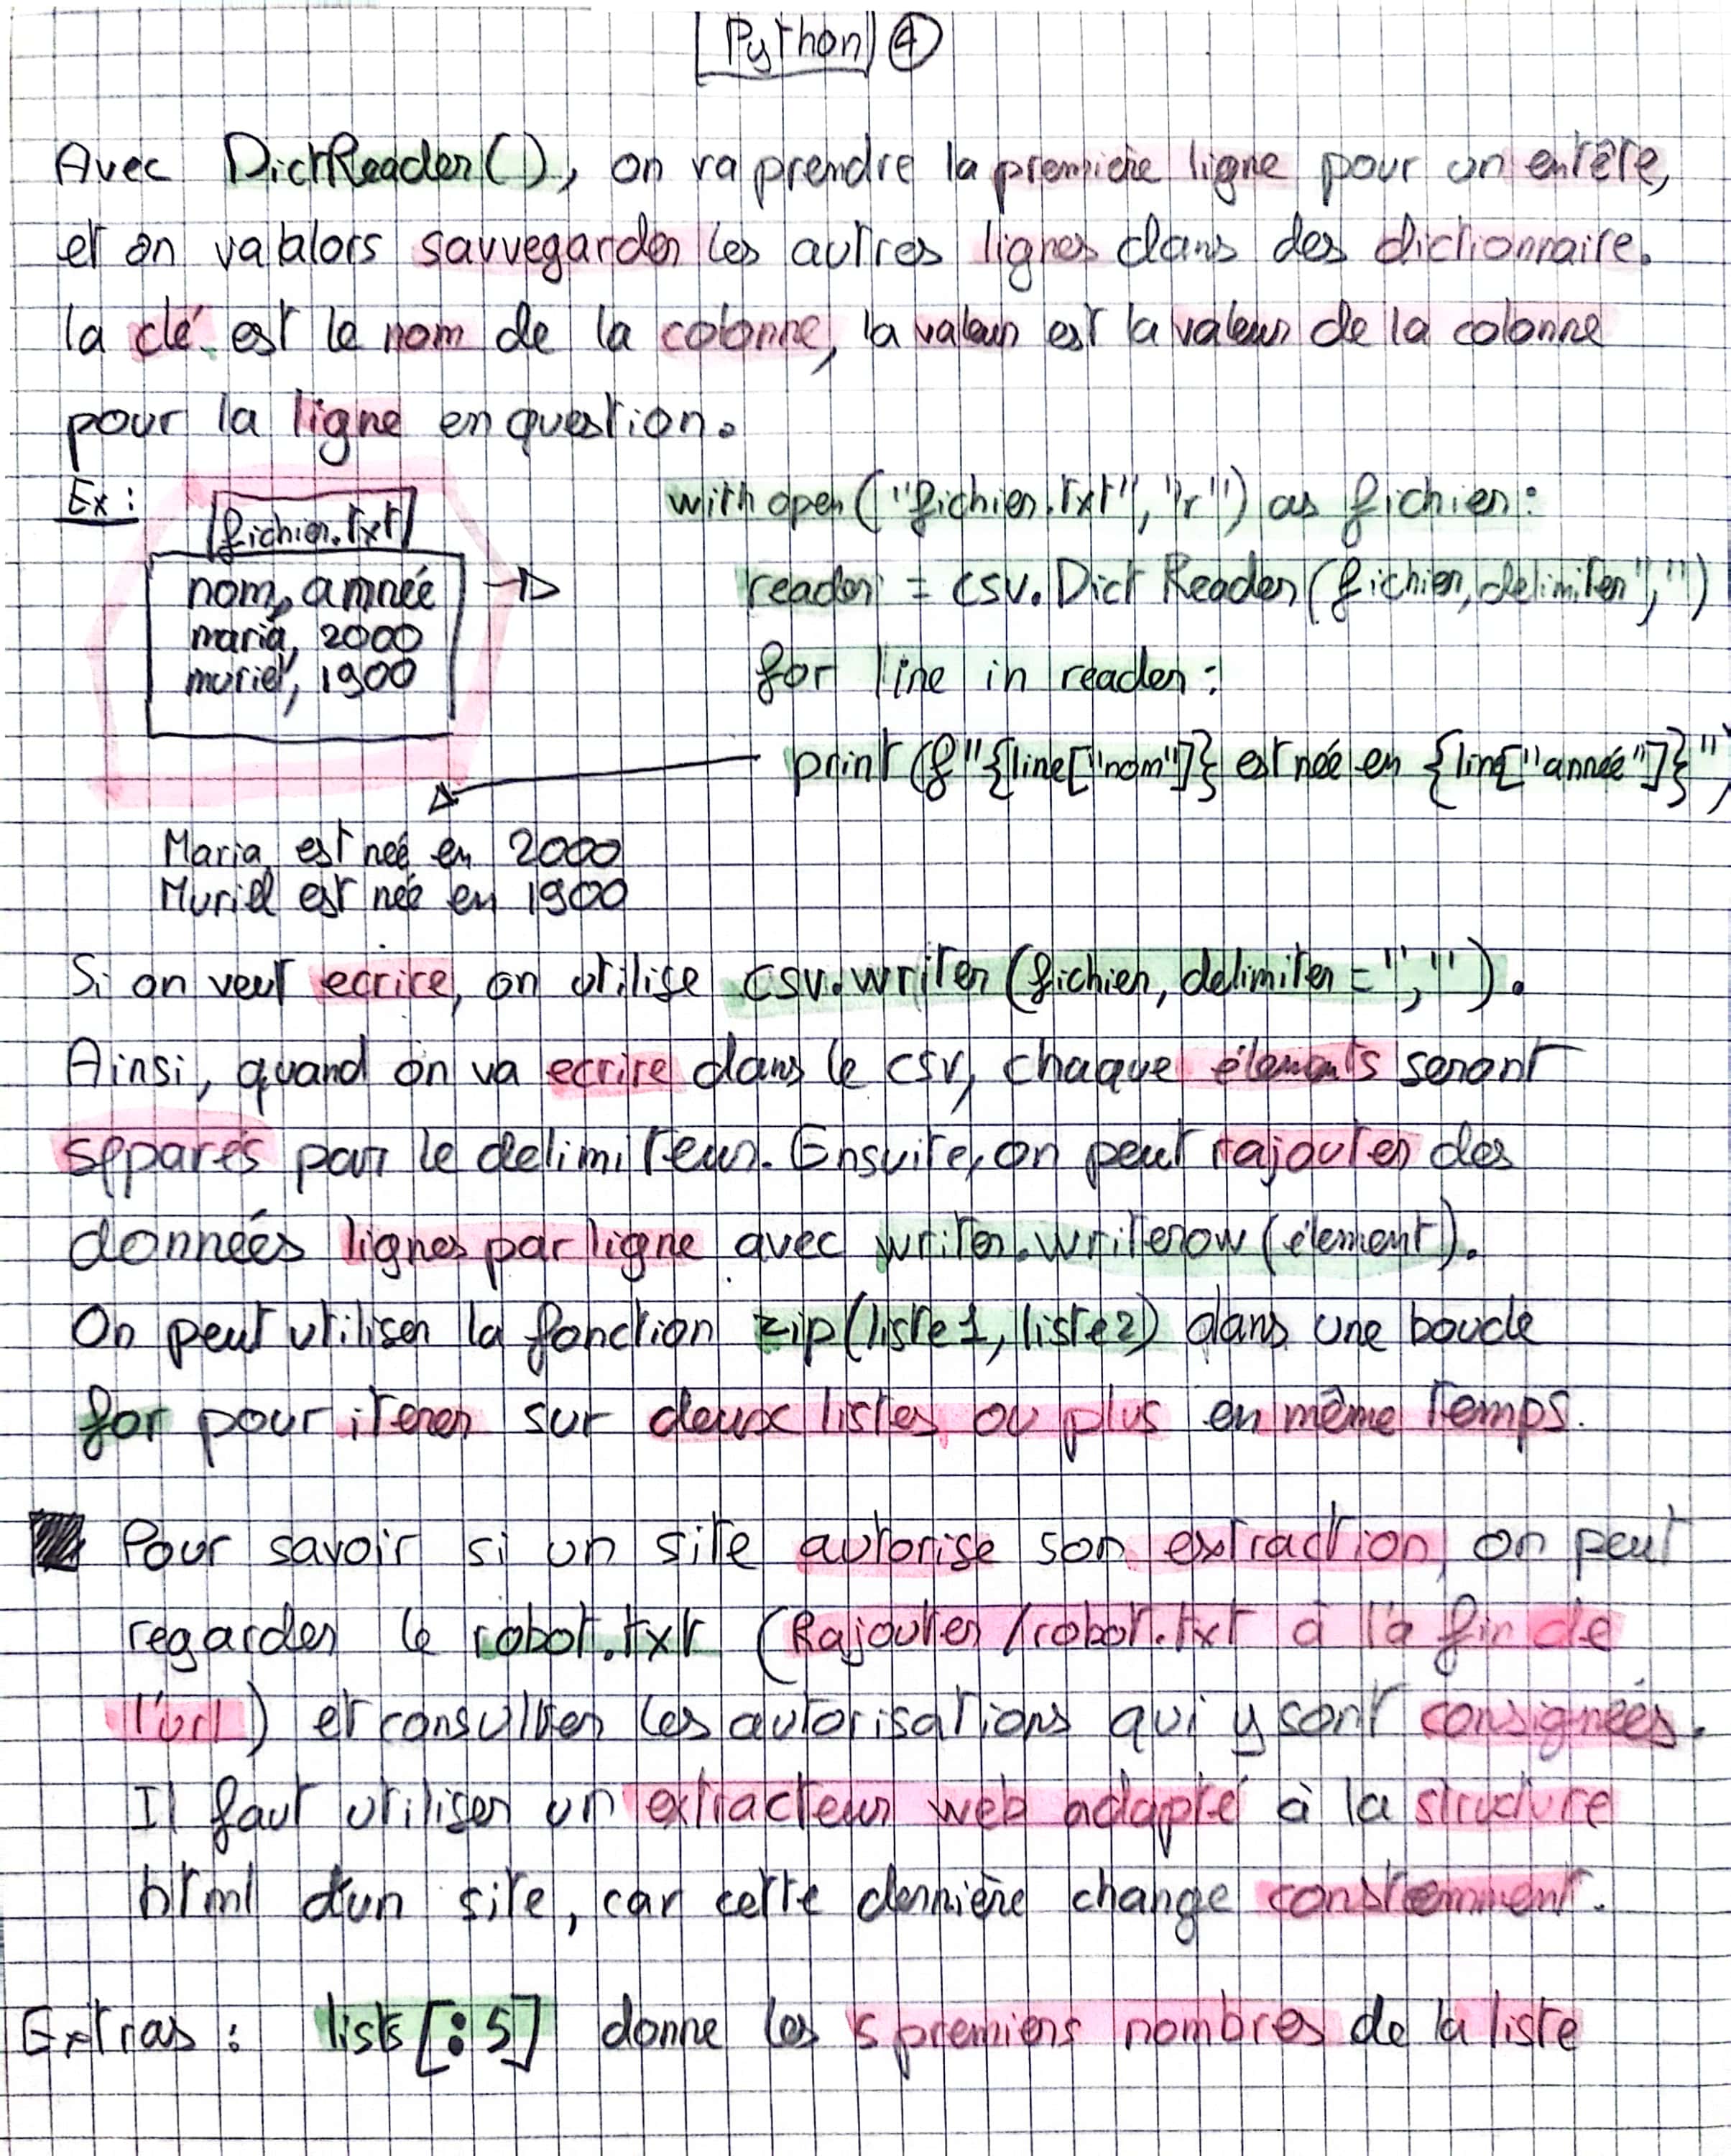 Python 4
Avec DictReader(), on va prendre la première ligne pour un entête,
et on va alors sauvegarder les autres lignes dans des dictionnaire.
la clé est le nom de la colonne, la valeur est la valeur de la colonne
pour la ligne en question.
Ex:
fichier.txt
nom, année
maria, 2000
muriel, 1900
with open("fichier.txt", "r") as fichier:
reader = csv.DictReader(fichier, delimiter",")
for line in reader:
print(f"{line["nom"]} est née en {line["année"]}")
Maria est née en 2000
Muriel est née en 1900
Si on veut ecrire, on utilise csv.writer(fichier, delimiter=",").
Ainsi, quand on va ecrire dans le csv, chaque élements seront
séparés par le delimiteur. Ensuite, on peut rajouter des
données lignes par ligne avec writer.writerow(élement).
On peut utiliser la fonction zip(liste1, liste2) dans une boucle
for pour iterer sur deux listes ou plus en même temps.
Pour savoir si un site autorise son extraction, on peut
regarder le robot.txt (Rajouter /robot.txt à la fin de
l'url) et consulter les autorisations qui y sont consignées.
Il faut utiliser un extracteur web adapté à la structure
html d'un site, car cette dernière change constemment.
Extras : liste[:5] donne les 5 premiers nombres de la liste